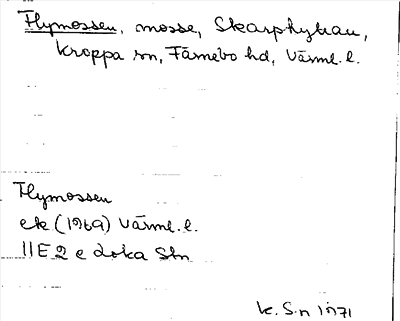 Flymossen, mosse, Skarphyttan,
Kroppa sn, Färnebo hd, Värml. l.
Flymossen
ek (1969) Värml. l.
11E 2 e Loka Stn
K. S-n 1971